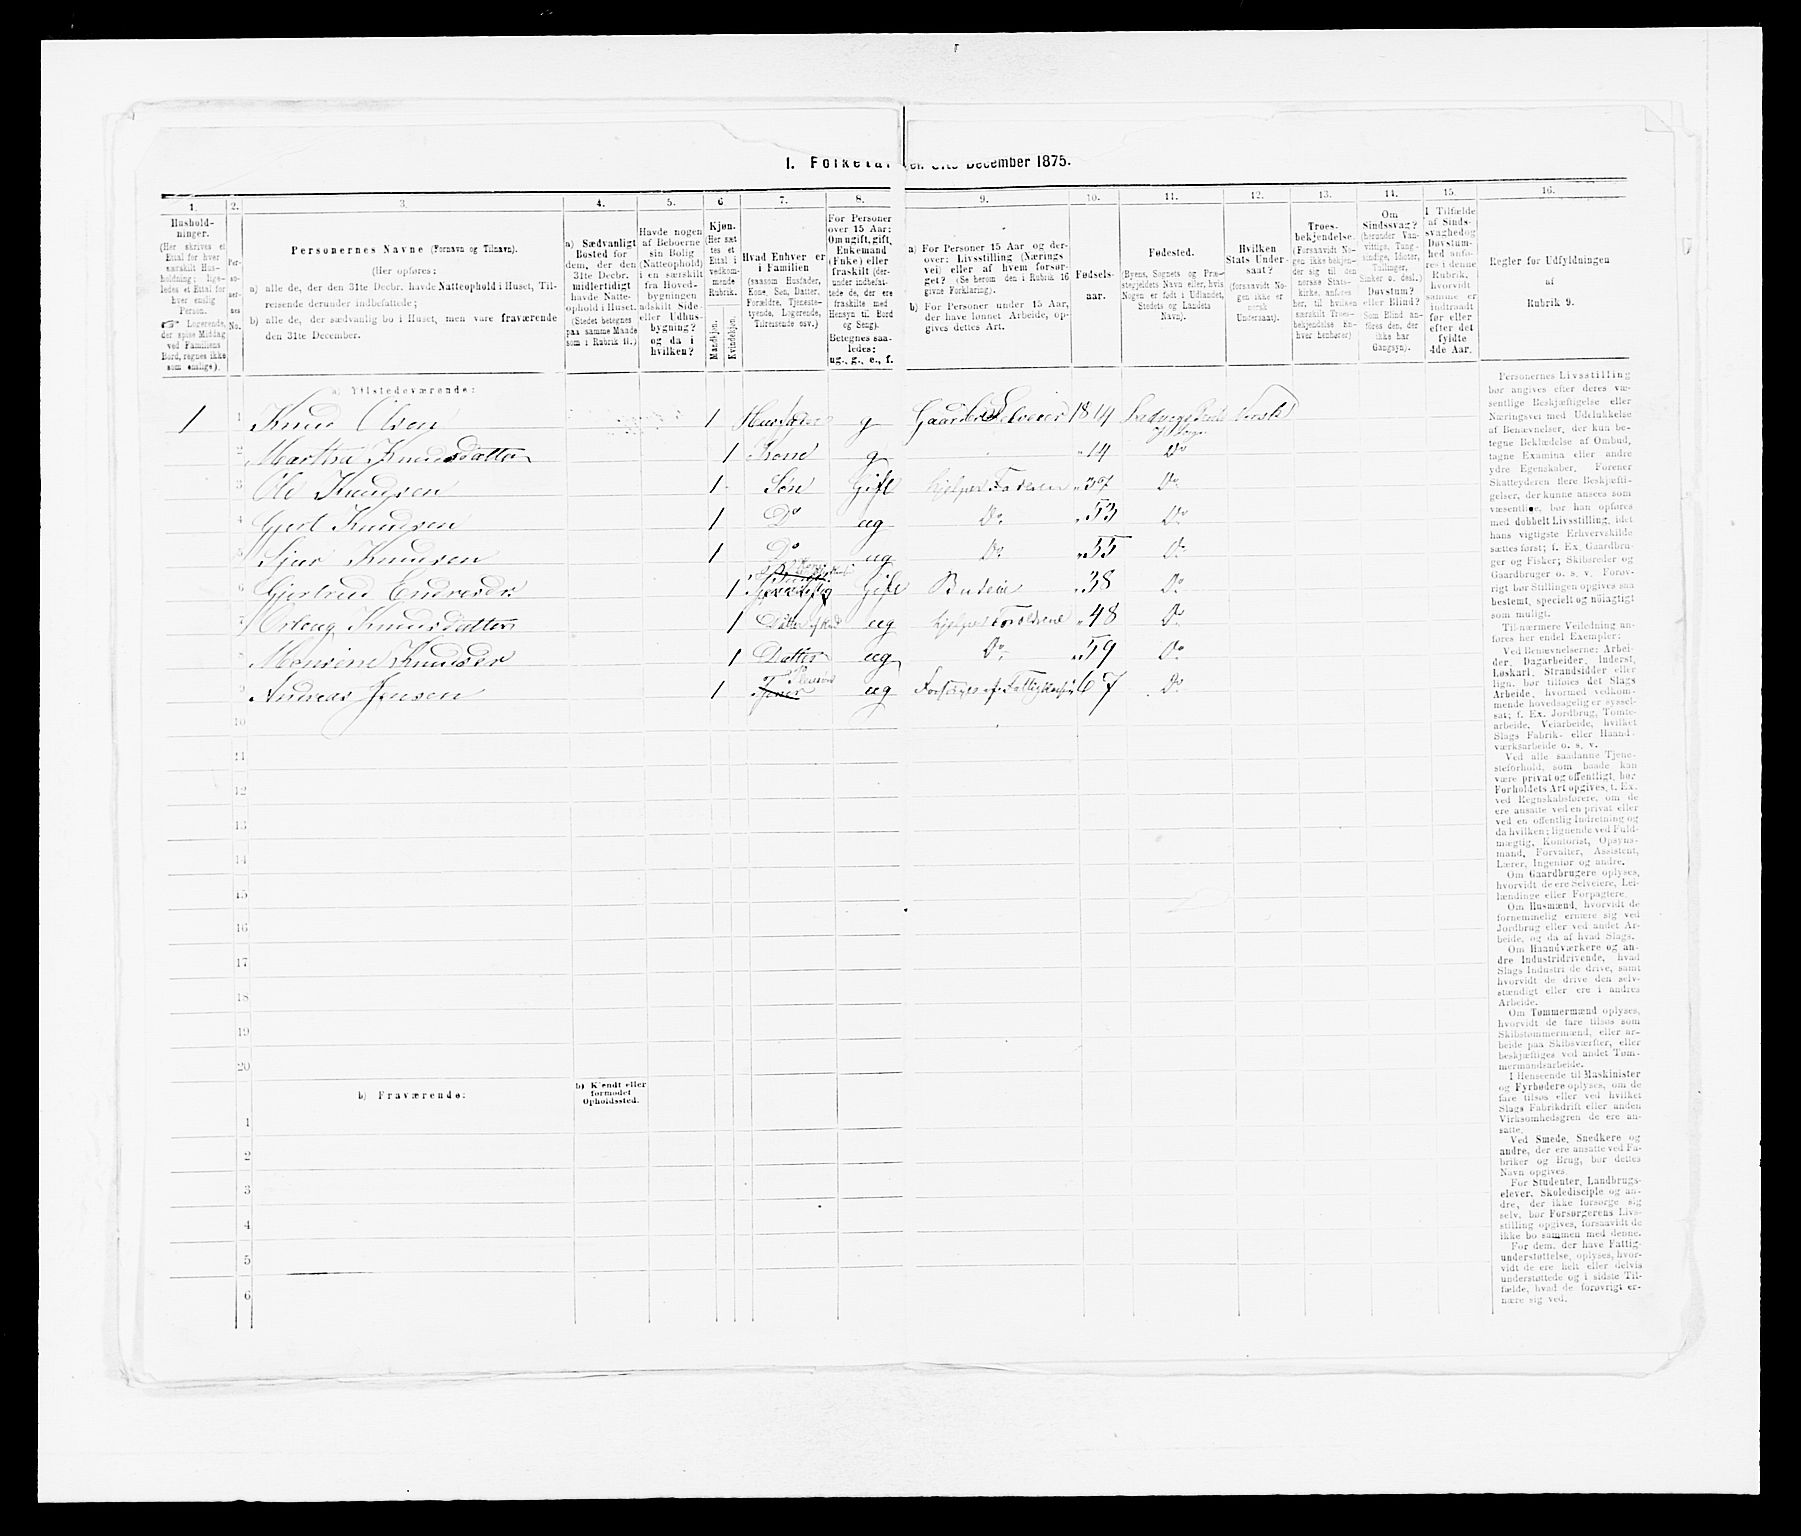 1. Folketal December 1875.
1.
2.
3.
4.
5.
6
7.
8.
9.
10.
11.
12.
13.
14.
15.
16.
Hushold-
ninger.
(Her skrives et
Ettal for hver
særskilt Hus-
holdning; lige-
ledes et Ettal for
hver enslig
Person.
☞ Logerende,
der spise Middag
ved Familiens
Bord, regnes ikke
som enslige).
Per-
so-
ner-
nes
No.
Personernes Navne (Fornavn og Tilnavn).
(Her opføres:
a) alle de, der den 31te Decbr. havde Natteophold i Huset, Til-
reisende derunder indbefattede;
b) alle de, der sædvanlig bo i Huset, men vare fraværende
den 31te December.
a) Sædvanligt
Bosted for
dem, der den
31te Decbr.
midlertidigt
havde Natte-
ophold i Huset.
(Stedet betegnes
paa samme Maade
som i Rubrik 11.)
Havde nogen
af Beboerne
sin Bolig
(Natteophold)
i en særskilt
fra Hoved-
bygningen
adskilt Side-
eller Udhus-
bygning?
og da i
hvilken?
Kjøn.
(Her sæt
tes et
Ettal i
vedkom-
mende
Rubrik.
Mandkjøn.
Kvindekjøn.
Hvad Enhver er
i Familien
(saasom Husfader,
Kone, Søn, Datter,
Forældre, Tjeneste-
tyende, Logerende,
Tilreisende osv.)
For Personer
over 15 Aar:
Om ugift, gift,
Enkemand
(Enke) eller
fraskilt (der-
under indbefat-
tede de, der ere
fraskilte med
Hensyn til Bord
og Seng).
Betegnes saa-
ledes:
ug., g., e., f.
a) For Personer 15 Aar og der-
over: Livsstilling (Nærings
vei) eller af hvem forsør-
get? (Se herom den i Rubrik 16
givne Forklaring).
b) For Personer under 15 Aar,
der have lønnet Arbeide, op-
gives dettes Art.
Fødsels-
aar.
Fødested.
(Byens, Sognets og Præ-
stegjeldets Navn eller, hvis
Nogen er født i Udlandet,
Stedets og Landets
Navn).
Hvilken
Stats Under-
saat?
(forsaavidt No-
gen ikke er
norsk
Undersaat).
Troes-
bekjendelse.
(Forsaavidt No-
gen ikke bekjen-
der sig til den
norske Stats-
kirke, anføres
her, til hvilken
særskilt Troes-
bekjendelse En-
hver henhører)
Om
Sindssvag?
(herunder Van-
vittige, Tung-
sindige, Idioter,
Tullinger,
Sinker o. desl.)
Døvstum?
eller Blind?
Som Blind an-
føres den, der
ikke har
Gangsyn).
I Tilfælde
af Sinds-
svaghed og
Døvstum-
hed anfø-
res i denne
Rubrik,
hvorvidt
samme er
indtraadt
før eller
efter det
fyldte
4de Aar.
Regler for Udfyldningen
af
Rubrik 9.
a) Tilstedeværende:
1 1 Knud Olsen 1 Husfader g Gaardbr Selveier 1814 Norsk
2 Martha Knudsdatter 1 Kone g " 14 Do
3 Ole Knudsen 1 Søn Gift hjelper Faderen " 37 Do
4 Gjert Knudsen 1 Do ug Do " 53 Do
5 Knudsen 1 Do ug Do " 55 Do
6 Gjertrud Endresdr 1 Gift Budeie " 38 Do
7 Knudsdatter 1 ug hjelper Foreldrene " 48 Do
8 Knudsdr 1 Datter ug Do " 59 Do
9 Andreas Jensen 1 ug Forsørges af 67 Do
10
11
12
13
14
15
16
17
18
19
20
b) Fraværende:
b) Kjendt eller
formodet
Opholdssted.
1
2
3
4
5
6
Personernes Livsstilling
bør angives efter deres væ-
sentlige Beskjæftigelse eller
Næringsvei med Udelukkelse
af Benævnelser, der kun be-
tegne Beklædelse af Ombud,
tagne Examina eller andre
ydre Egenskaber. Forener
Skatteyderen flere Beskjæfti-
gelser, der kunne ansees som
væsentlige, bør han opføres
med dobbelt Livsstilling, idet
hans vigtigste Erhvervskilde
sættes først; f. Ex. Gaardbru-
ger og Fisker; Skibsreder og
Gaardbruger o. s. v. Forøv-
rigt bør Stillingen opgives saa
bestemt, specielt og nøiagtigt
som muligt.
Til nærmere Veiledning an-
føres her endel Exempler:
Ved Benævnelserne: Arbei-
der, Dagarbeider, Inderst,
Løskarl, Strandsidder eller
lign. bør tilføies det Slags
Arbeide, hvormed vedkom-
mende hovedsagelig er syssel-
sat; f. Ex. Jordbrug, Tomte-
arbeide, Veiarbeide, hvilket
Slags Fabrik- eller Haand-
værksarbeide o. s. v.
Ved alle saadanne Tjene-
steforhold, som baade kan
være privat og offentligt, bør
Forholdets Art opgives, f. Ex.
ved Regnskabsførere, om de
ere ansatte ved en privat eller
ved en offentlig Indretning og
da hvilken; lignende ved Fuld-
mægtig, Kontorist, Opsyns-
mand, Forvalter, Assistent,
Lærer, Ingeniør og andre.
Om Gaardbrugere oplyses,
hvorvidt de ere Selveiere, Lei-
lændinge eller Forpagtere.
Om Husmænd, hvorvidt de
fornemmelig ernære sig ved
Jordbrug eller ved andet Ar-
beide, og da af hvad Slags.
Om Haandværkere og an-
dre Industridrivende, hvad
Slags Industri de drive, samt
hvorvidt de drive den selv-
stændigt eller ere i andres
Arbeide.
Om Tømmermænd oplyses,
hvorvidt de fare tilsøs som
Skibstømmermænd, eller ar-
beide paa Skibsværfter, eller
beskjæftiges ved andet Tøm-
mermandsarbeide.
I Henseende til Maskinister
og Fyrbødere oplyses, om de
fare tilsøs eller ved hvilket
Slags Fabrikdrift eller anden
Virksomhedsgren de ere an-
satte.
Ved Smede, Snedkere og
andre, der ere ansatte ved Fa-
briker og Brug, bør dettes
Navn opgives.
For Studenter, Landbrugs-
elever, Skoledisciple og an-
dre, der ikke forsørge sig
selv, bør Forsørgerens Livs-
stilling opgives, forsaavidt de
ikke bo sammen med denne.
For dem, der have Fattig-
understøttelse, oplyses, hvor-
vidt de ere helt eller delvis
understøttede og i sidste Til-
fælde, hvad de forøvrigt er-
nære sig ved.